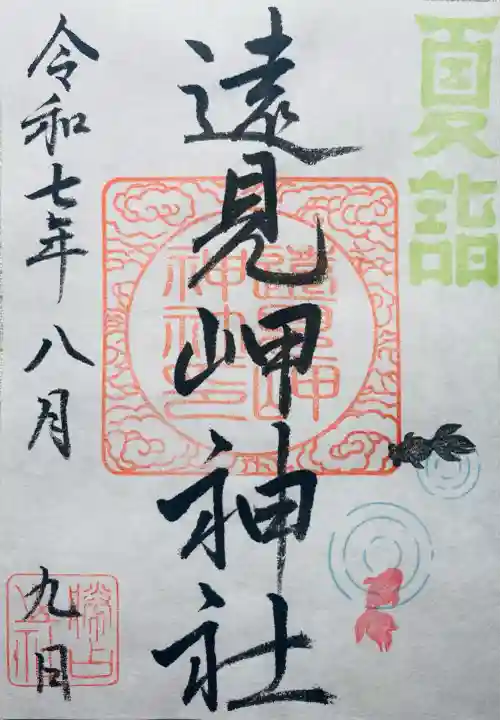 夏詣
遠見岬神社
遠見岬神社印
令和七年八月九日